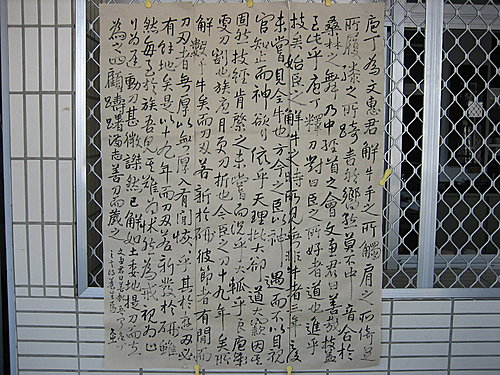 庖丁為文惠君解牛手之所觸肩之所倚足之
所履膝之所踦砉然嚮然莫不中音合於
桑林之舞乃中經首之會文惠君曰善哉技蓋
至此乎庖丁釋刀對曰臣之所好者道也進乎
技矣始臣之解牛之時所見無非牛者三年之後
未嘗見全牛也方今之臣以神遇而不以目視
官知止而神欲行依乎天理批大郤道大窾因其
固然技經肯綮之未嘗而況乎大軱乎良庖歲
更刀割也族庖月更刀折也今臣之刀十九年矣所
解數千牛矣而刀刃若新發於硎彼節者有間而
刀刃者無厚以無厚入有間恢恢乎其於遊刃必
有餘地矣是以十九年而刀刃若新發於硎雖
然每至於族吾見其難為怵然為戒視為止
行為遲動刀甚微謋然已解如土委地提刀而立
為之四顧躊躇滿志善刀而藏之
文惠君曰善哉吾聞庖丁
之言得養生焉